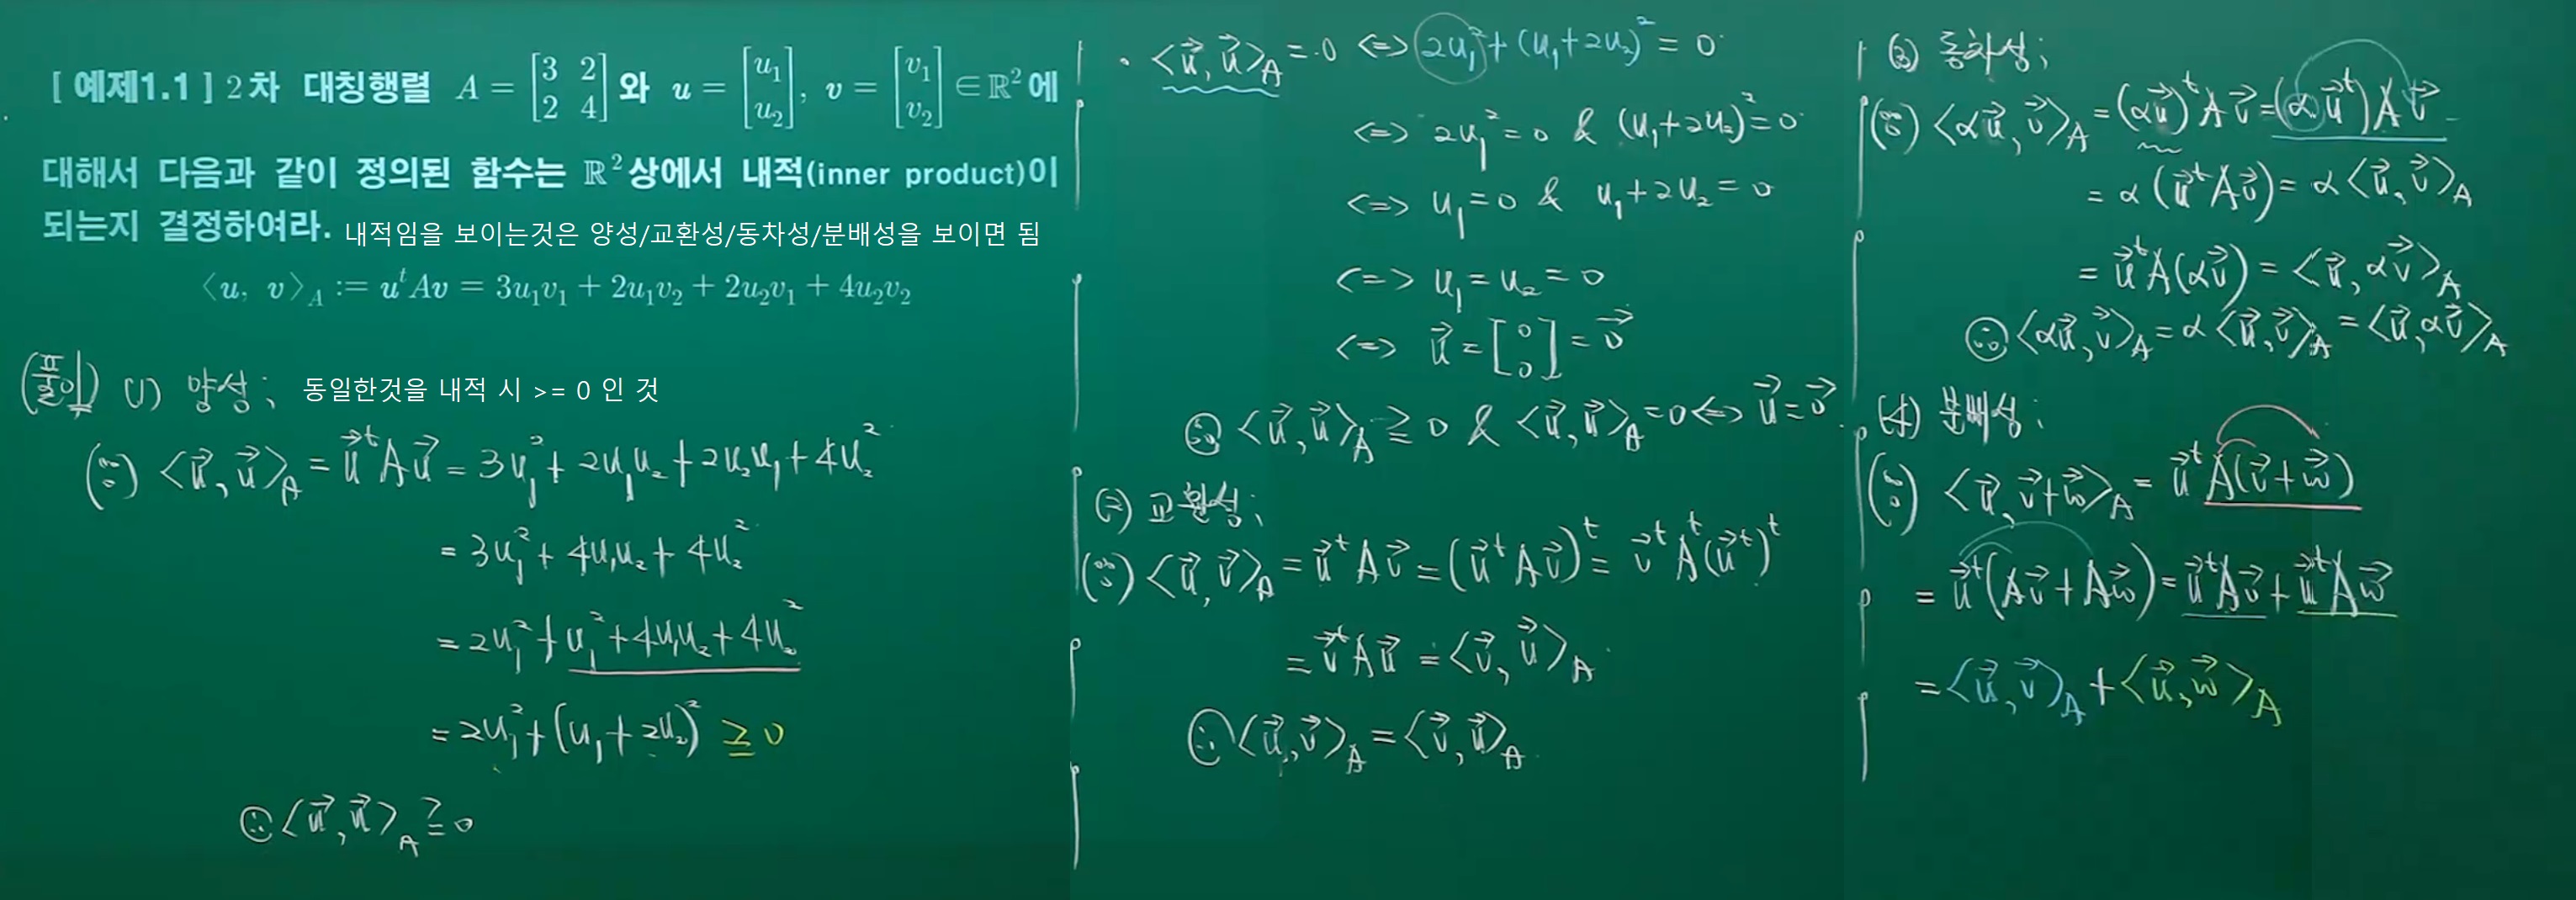 [ 예제1.1 ] 2차 대칭행렬 A = [3 2; 2 4] 와 u = [u₁; u₂], v = [v₁; v₂] ∈ ℝ² 에
대해서 다음과 같이 정의된 함수는 ℝ²상에서 내적(inner product)이
되는지 결정하여라. 내적임을 보이는것은 양성/교환성/동차성/분배성을 보이면 됨
⟨u, v⟩_A := uᵗAv = 3u₁v₁ + 2u₁v₂ + 2u₂v₁ + 4u₂v₂
(풀이) (1) 양성; 동일한것을 내적 시 >= 0 인 것
(∵) ⟨u⃗, u⃗⟩_A = u⃗ᵗAu⃗ = 3u₁² + 2u₁u₂ + 2u₂u₁ + 4u₂²
= 3u₁² + 4u₁u₂ + 4u₂²
= 2u₁² + u₁² + 4u₁u₂ + 4u₂²
= 2u₁² + (u₁ + 2u₂)² ≧ 0
∴ ⟨u⃗, u⃗⟩_A ≧ 0
· ⟨u⃗, u⃗⟩_A = 0 <=> 2u₁² + (u₁+2u₂)² = 0
<=> 2u₁² = 0 & (u₁+2u₂)² = 0
<=> u₁ = 0 & u₁+2u₂ = 0
<=> u₁ = u₂ = 0
<=> u⃗ = [0; 0] = 0⃗
∴ ⟨u⃗, u⃗⟩_A ≧ 0 & ⟨u⃗, u⃗⟩_A = 0 <=> u⃗ = 0⃗
(2) 교환성;
(∵) ⟨u⃗, v⃗⟩_A = u⃗ᵗAv⃗ = (u⃗ᵗAv⃗)ᵗ = v⃗ᵗAᵗ(u⃗ᵗ)ᵗ
= v⃗ᵗAu⃗ = ⟨v⃗, u⃗⟩_A
∴ ⟨u⃗, v⃗⟩_A = ⟨v⃗, u⃗⟩_A
(3) 동차성;
(∵) ⟨αu⃗, v⃗⟩_A = (αu⃗)ᵗAv⃗ = (αu⃗ᵗ)Av⃗
= α(u⃗ᵗAv⃗) = α⟨u⃗, v⃗⟩_A
= u⃗ᵗA(αv⃗) = ⟨u⃗, αv⃗⟩_A
∴ ⟨αu⃗, v⃗⟩_A = α⟨u⃗, v⃗⟩_A = ⟨u⃗, αv⃗⟩_A
(4) 분배성;
(∵) ⟨u⃗, v⃗+w⃗⟩_A = u⃗ᵗA(v⃗+w⃗)
= u⃗ᵗ(Av⃗+Aw⃗) = u⃗ᵗAv⃗ + u⃗ᵗAw⃗
= ⟨u⃗, v⃗⟩_A + ⟨u⃗, w⃗⟩_A